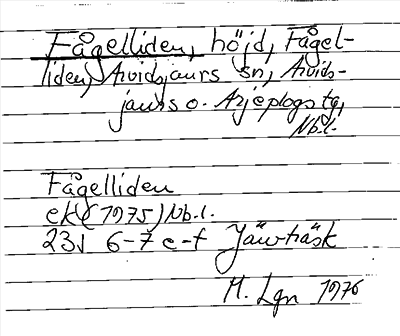 Fågelliden, höjd, Fågel-
liden, Arvidsjaurs sn, Arvids-
jaurs o. Arjeplogs tg,
Nb.l.
Fågelliden
ek (1975) Nb.l.
23J 6-7 e-f Järvträsk
M. Lgn 1976